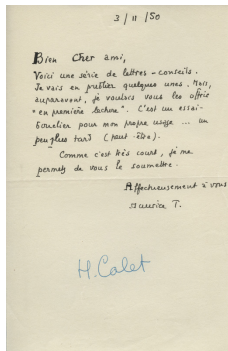 3/11/50
Bien Cher ami,
Voici une série de lettres-conseils.
Je vais en publier quelques unes. Mais,
auparavant, je voulais vous les offrir
"en première lecture". C'est un essai-
bouclier pour mon propre usage ... un
peu plus tard (peut-être).
Comme c'est très court, je me
permets de vous le soumettre.
Affectueusement à vous
Maurice T.
H. Calet